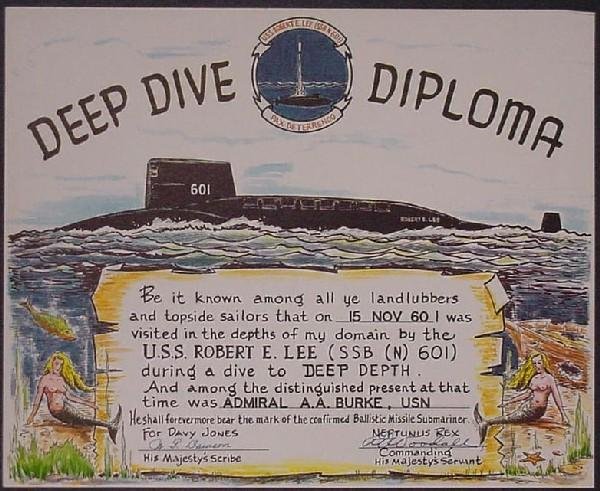 USS ROBERT E. LEE (SSB N 601)
DEEP DIVE DIPLOMA
601
ROBERT E. LEE
Be it known among all ye landlubbers
and topside sailors that on 15 NOV 60 I was
visited in the depths of my domain by the
U.S.S. ROBERT E. LEE (SSB (N) 601)
during a dive to DEEP DEPTH.
And among the distinguished present at that
time was ADMIRAL A.A. BURKE, USN
He shall forevermore bear the mark of the confirmed Ballistic Missile Submariner.
For Davy Jones
Neptunus Rex
His Majesty's Scribe
Commanding
His Majesty's Servant